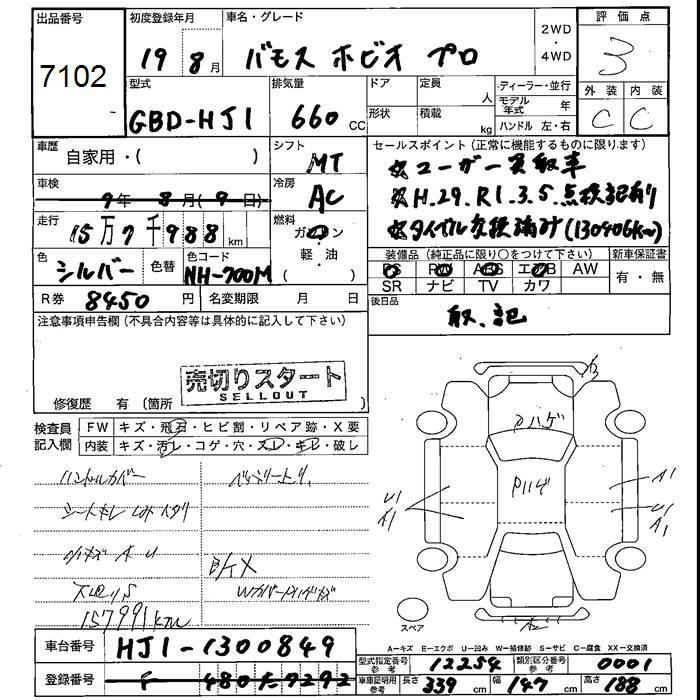 出品番号
7102
初度登録年月
19 8月
車名・グレード
バモス ホビオ プロ
2WD
・
4WD
評価点
3
外装 内装
C C
型式
GBD-HJ1
排気量
660 CC
ドア
形状
定員
人
積載
kg
ディーラー・並行
モデル年式 年
ハンドル 左・右
車歴
自家用・( )
シフト
MT
セールスポイント (正常に機能するものに限ります)
☆ユーザー買取車
☆H.29.R1.3.5.点検記有り
☆タイベル交換済み(130406K~)
車検
9年 8月(9日)
冷房
AC
走行
15万7千988 km
燃料
ガソリン
軽・油
( )
色
シルバー
色替
色コード
NH-700M
装備品 (純正品に限り○をつけて下さい)
PS PW ABS エアB AW
SR ナビ TV カワ
新車保証書
有・無
R券 8450 円
名変期限 月 日
後日品
取、記
注意事項申告欄(不具合内容等は具体的に記入して下さい)
売切りスタート
SELLOUT
修復歴 有 (箇所
検査員
記入欄
FW キズ・飛石・ヒビ割・リペア跡・X要
内装 キズ・汚レ・コゲ・穴・スレ・キレ・破レ
ハンドルカバー
157991km
Pハゲ
Pハゲ
U1
A1
A1
U1
A1
スペア
A=キズ E=エクボ U=凹み W=補修跡 S=サビ C=腐食 XX=交換済
車台番号 HJ1-1300849
登録番号 480 た 7292
型式指定番号
参考
12254
類別区分番号
参考
0001
車庫証明用
参考
長さ 339 cm 幅 147 cm 高さ 188 cm